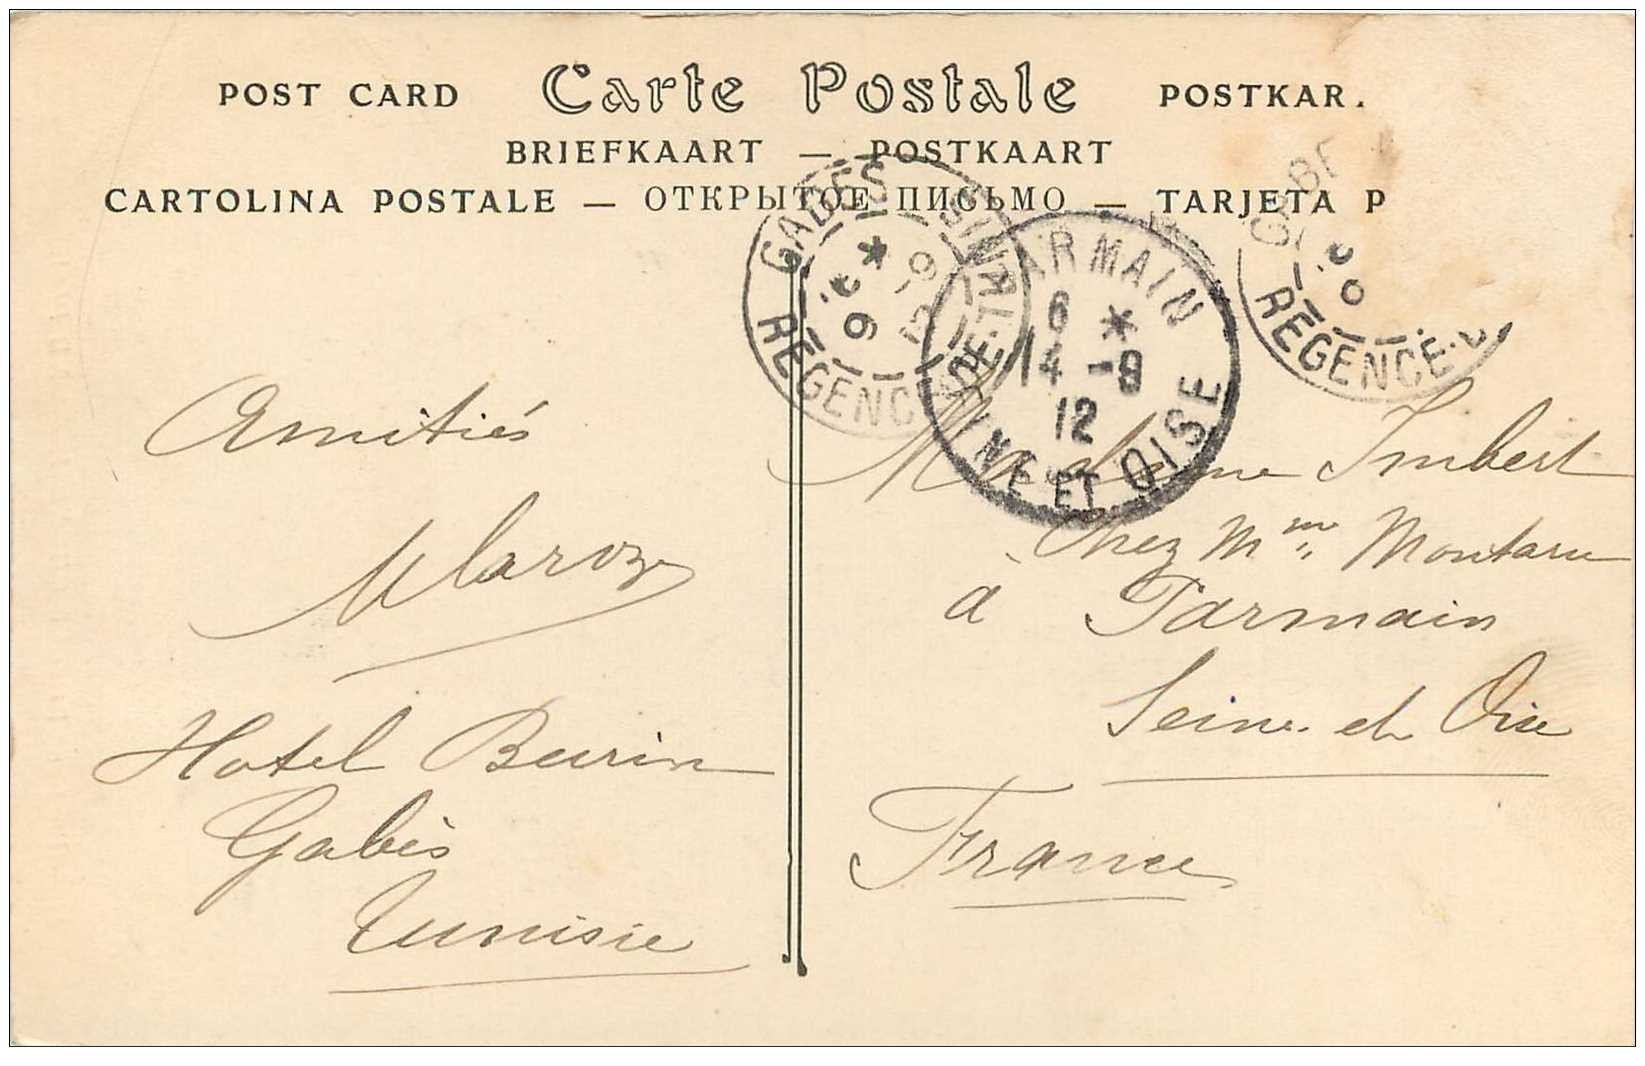 POST CARD Carte Postale POSTKAR.
BRIEFKAART — POSTKAART
CARTOLINA POSTALE — ОТКРЫТОЕ ПИСЬМО — TARJETA P
GABÈS
REGENCE DE TUNIS
ARMAIN
6 *
14 -9
12
SEINE ET OISE
GABÈ
REGENCE
Amitiés
Hotel
Gabès
Tunisie
Madame Imbert
Chez Mme
à Parmain
Seine et Oise
France